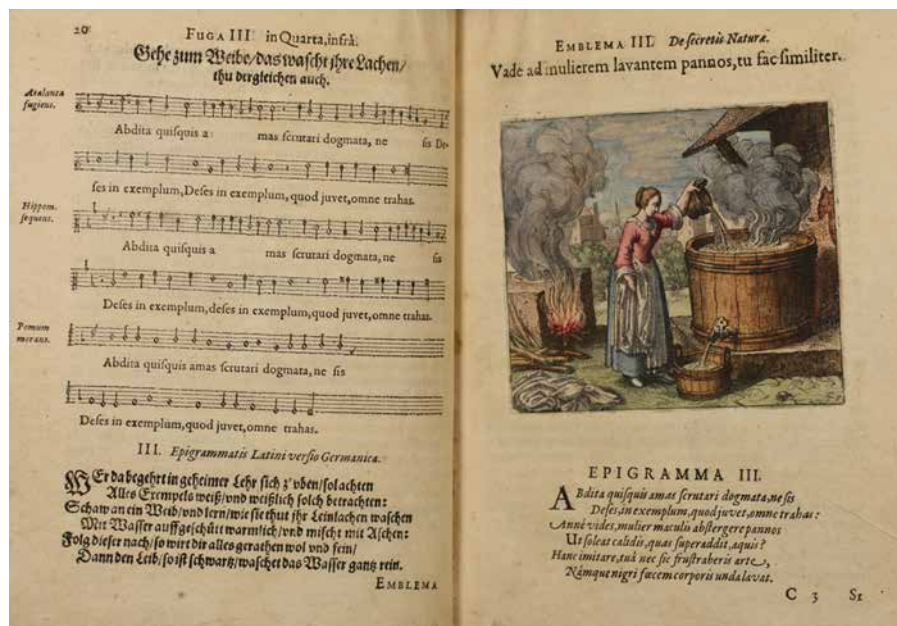 20
FUGA III. in Quarta, infrà.
Gehe zum Weibe/das wascht jhre Lachen/
thu dergleichen auch.
Atalanta
fugiens.
Abdita quiſquis a mas ſcrutari dogmata, ne ſis De-
ſes in exemplum, Deſes in exemplum, quod juvet, omne trahas.
Hippom.
ſequens.
Abdita quiſquis a mas ſcrutari dogmata, ne ſis
Deſes in exemplum, deſes in exemplum, quod juvet, omne trahas.
Pomum
morans.
Abdita quiſquis amas ſcrutari dogmata, ne ſis
Deſes in exemplum, quod juvet, omne trahas.
III. Epigrammatis Latini verſio Germanica.
WEr da begehrt in geheimer Lehr ſich z'vben/ſol achten
Alles Exempels weiß/vnd weißlich ſolch betrachten:
Schaw an ein Weib/vnd lern/wie ſie thut jhr Leinlachen waſchen
Mit Waſſer auffgeſchütt warmlich/vnd miſcht mit Aſchen:
Folg dieſer nach/ſo wirt dir alles gerathen wol vnd fein/
Dann den Leib/ſo iſt ſchwartz/waſchet das Waſſer gantz rein.
EMBLEMA
EMBLEMA III. De ſecretis Naturæ.
Vade ad mulierem lavantem pannos, tu fac ſimiliter.
EPIGRAMMA III.
ABdita quiſquis amas ſcrutari dogmata, ne ſis
Deſes, in exemplum, quod juvet, omne trahas:
Anné vides, mulier maculis abſtergere pannos
Ut ſoleat calidis, quas ſuperaddit, aquis?
Hanc imitare, tuâ nec ſic fruſtraberis arte,
Námque nigri fæcem corporis unda lavat.
C 3 St